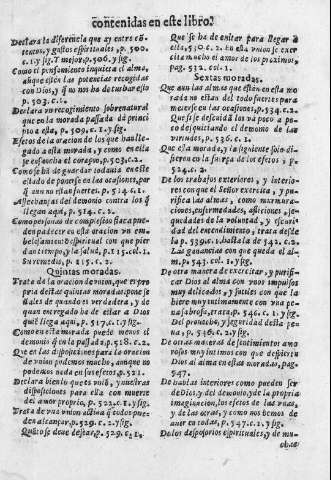 contenidas en este libro.
Declara la diferencia que ay entre cõ-
tentos, y gustos espirituales, p. 500.
c. 1. y sig. Y mejor, p. 506. y sig.
Como el pensamiento inquieta el alma,
aunque estèn las potencias recogidas
con Dios, y q̃ no nos ha de turbar esto
p. 503. c. 1.
Declara vn recogimiento sobrenatural
que en la morada passada dà princi-
pio a esta, p. 509. c. 1. y sig.
Efetos de la oracion de los que han lle-
gado a esta morada, y como en ella
se ensancha el coraçon, p. 503. c. 2.
Como se hà de guardar todavia en este
estado de ponerse en las ocasiones, por
q̃ aun no estan fuertes. p. 514. c. 1.
Assechanças del demonio contra los q̃
llegan aqui, p. 514. c. 2.
Como personas de complexion flaca pue-
den padecer en esta oracion vn em-
belesamiento espiritual con que pier
dan tiempo, y la salud, p. 515. col. 1.
Su remedio, p. 515. c. 1.
Quintas moradas.
Trata de la oracion de union, que es pro
pria destas quintas moradas: pone se
ñales de quando es verdadera, y de
quan entregado ha de estar a Dios
quiē llega aqui, p. 517. c. 1. y sig.
Como en esta morada puede menos el
demonio q̃ en la passada. p. 518. c. 2.
Que en las disposiciones para la oracion
de union podemos mucho, aunque no
podemos nada en sus efectos. p. 521.
Declara bien lo que es union, y nuestras
disposiciones para ella con muerte
del amor proprio, p. 522. c. 1. y sig.
Trata de una union altissima q̃ todos pue-
den alcançar, p. 529. c. 2. y sig.
Quiē se deue desear, p. 529. c. 1.
Que se ha de euitar para llegar a
ella, 530. c. 2. En esta union se exer
cita mucho el amor de los proximos,
pag. 532. col. 1.
Sextas moradas.
Que aun las almas que estàn en esta mo
rada no estan del todo fuertes para
meterse en las ocasiones, p. 534. c. 2.
Que si se descuida las va poco a po-
co desquiciando el demonio de las
virtudes, p. 536. c. 1.
Que esta morada, y la siguiente solo dif-
fieren en la fuerça de los efetos, p.
524. c. 2.
De los trabajos exteriores, y interio-
res con que el Señor exercita, y pu-
rifica las almas, como murmura-
ciones, enfermedades, afliciones, seque-
dades de la voluntad, y escuri-
dad del entendimiento, trata desde
la p. 539. c. 1. hasta la de 542. c. 2.
Las ganancias con que queda el al-
ma, p. 543. col. 1. y sig.
De otra manera de exercitar, y purifi-
car Dios al alma con unos impulsos
muy delicados, y sutiles con que la
hiere muy intimamente con una pe-
na sabrosa, trata, p. 546. c. 1. y sig.
Del prouecho, y seguridad desta pe-
na, p. 546. c. 2. y sig.
De otras maneras de sentimientos amo
rosos muy intimos con que despierta
Dios al alma en estas moradas, pag.
547.
De hablas interiores como pueden ser
de Dios, y del demonio, y de la propria
imaginacion, los efetos de las unas,
y de las otras, y como nos hemos de
auer en todas, p. 547. c. 1. y sig.
De los desposorios espirituales, y de mu-